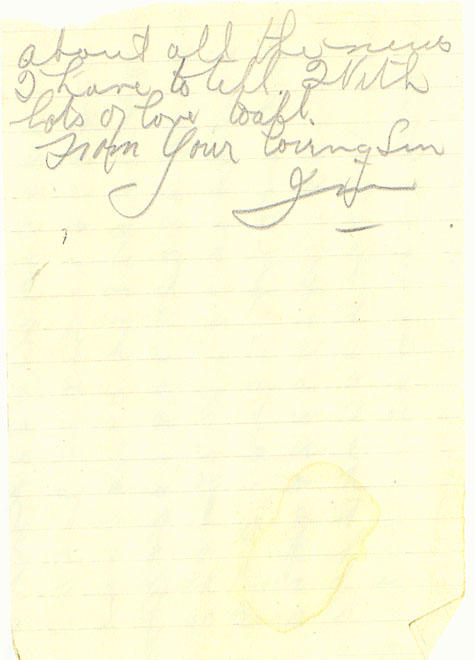 about all the news
I have to tell. With
lots of love to all.
From Your loving Son
Jim